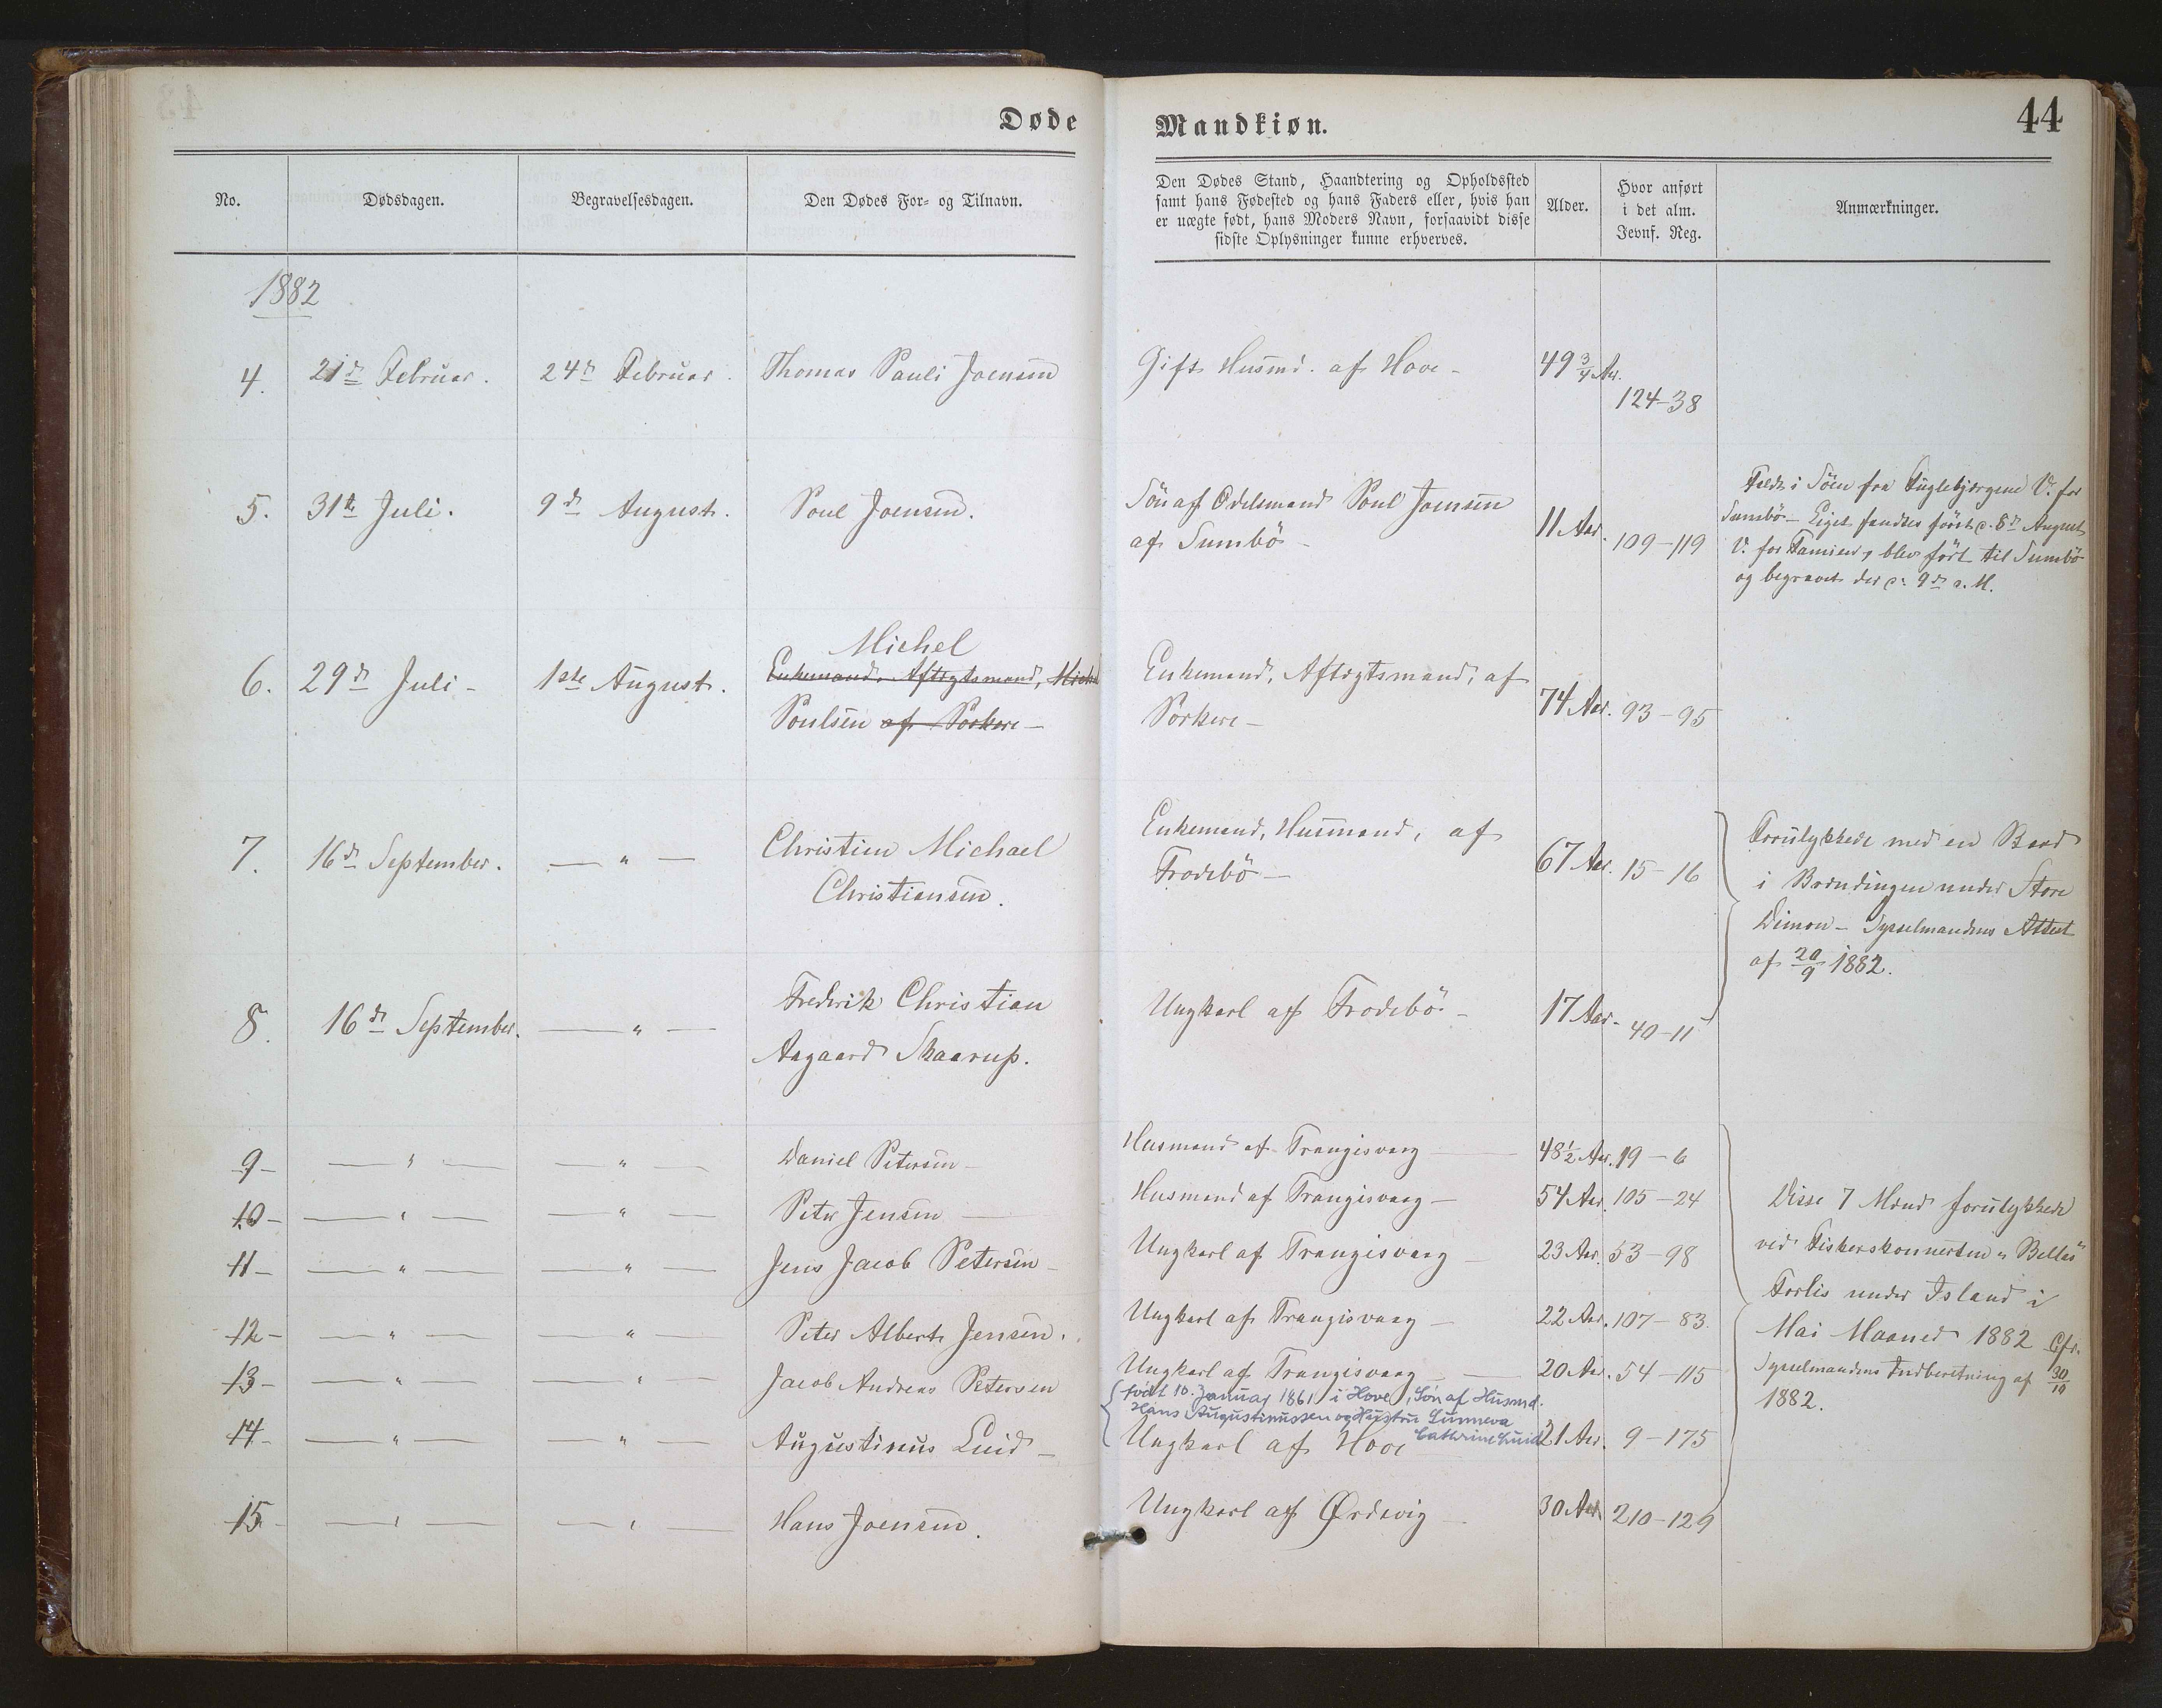 Døde
Mandkiøn.
44
No.
Dødsdagen.
Begravelsesdagen.
Den Dødes For- og Tilnavn.
Den Dødes Stand, Haandtering og Opholdssted
samt hans Fødested og hans Faders eller, hvis han
er uægte født, hans Moders Navn, forsaavidt disse
sidste Oplysninger kunne erhverves.
Alder.
Hvor anført
i det alm.
Jevnf. Reg.
Anmærkninger.
1882
4. 21de Februar. 24de Februar. Thomas Pauli Joensen Gift Husmd. af Hove - 49 3/4 Aar.
124-38
5. 31te Juli. 9de August. Poul Joensen. Søn af Odelsmand Poul Joensen
af Sumbö - 11 Aar. 109-119
Faldt i Söen fra Fuglebjergene V. for
Sumbö - Liget fandtes först d. 8de August
V. for Famien, blev fört til Sumbö
og begravet der d. 9de s. M.
Michel
6. 29de Juli - 1ste August. Enkemand, Aftægtsmand, Michel
Poulsen af Porkere -
Enkemand, Aftægtsmand, af
Porkere - 74 Aar. 93-95
7. 16de September. — " — Christian Michael
Christiansen.
Enkemand, Husmand, af
Frodebö - 67 Aar. 15-16
Forulykkede med en Baad
i Brændingen under Store
Dimon - Sysselmandens Attest
af 20/9 1882.
8. 16de September. — " — Frederik Christian
Aagaard Skaarup.
Ungkarl af Frodebö - 17 Aar. 40-11
9 - — " — — " — Daniel Petersen - Husmand af Trangisvaag — 48 1/2 Aar. 19-6
10 - — " — — " — Peter Jensen — Husmand af Trangisvaag - 54 Aar. 105-24
11 - — " — — " — Jens Jacob Petersen - Ungkarl af Trangisvaag - 23 Aar. 53-98
12 - — " — — " — Peter Albert Jensen. Ungkarl af Trangisvaag - 22 Aar. 107-83.
13 - — " — — " — Jacob Andreas Petersen Ungkarl af Trangisvaag — 20 Aar. 54-115
født 10. Januar 1861 i Hove, Søn af Husmd.
Hans Augustinussen og Hustru Sunneva
Cathrine Luid
14 - — " — — " — Augustinus Luid - Ungkarl af Hove 21 Aar. 9-175
15 - — " — — " — Hans Joensen. Ungkarl af Ørdevig - 30 Aar. 210-129
Disse 7 Mænd forulykkede
ved Fiskerskonnerten "Bellas"
Forlis under Island i
Mai Maaned 1882 Cfr.
Sysselmandens Indberetning af 30/10
1882.